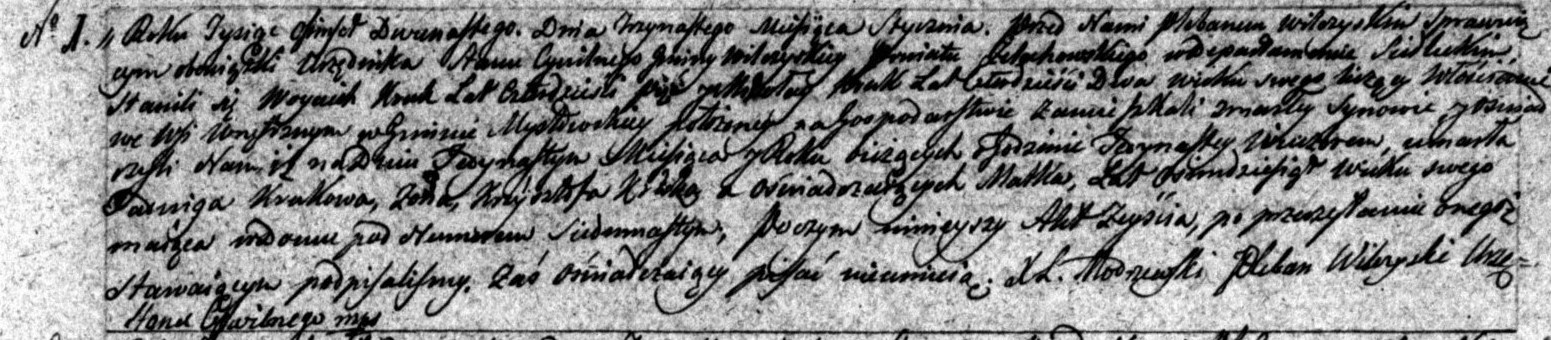 No 1. Roku Tysiąc Ośmset Dwunastego. Dnia Trzynastego Miesiąca Stycznia. Przed Nami Plebanem Wilczyskim Sprawuią
cym obowiązki Urzędnika Stanu Cywilnego Gminy Wilczyskiey Powiatu Żelechowskiego w departamencie Siedleckim
Stawili się Woyciech Kruk Lat Czterdzieści pięć y Mikołay Kruk Lat Czterdzieści Dwa wieku swego liczący Włościanie
we Wsi Wnętrznym w Gminie Mysłowskiey położoney na Gospodarstwie zamieszkali zmarłey Synowie y oświad
czyli Nam iż na Dniu Jedynastym Miesiąca y Roku bieżących o godzinie Jedynastey Wieczorem, umarła
Jadwiga Krukowa, Żona, Krzysztofa Kruka a oświadczaiących Matka, Lat Ośmdziesiąt wieku swego
maiąca w domu pod Numerem Siedmnastym, Poczym ninieyszy Akt Zeyścia, po przeczytaniu onegoż
Stawaiącym podpisalismy, Zaś Oświadczaiący pisać nieumieią. X L. Modzewski Pleban Wilczyski Urzę=
Stanu Cywilnego mps